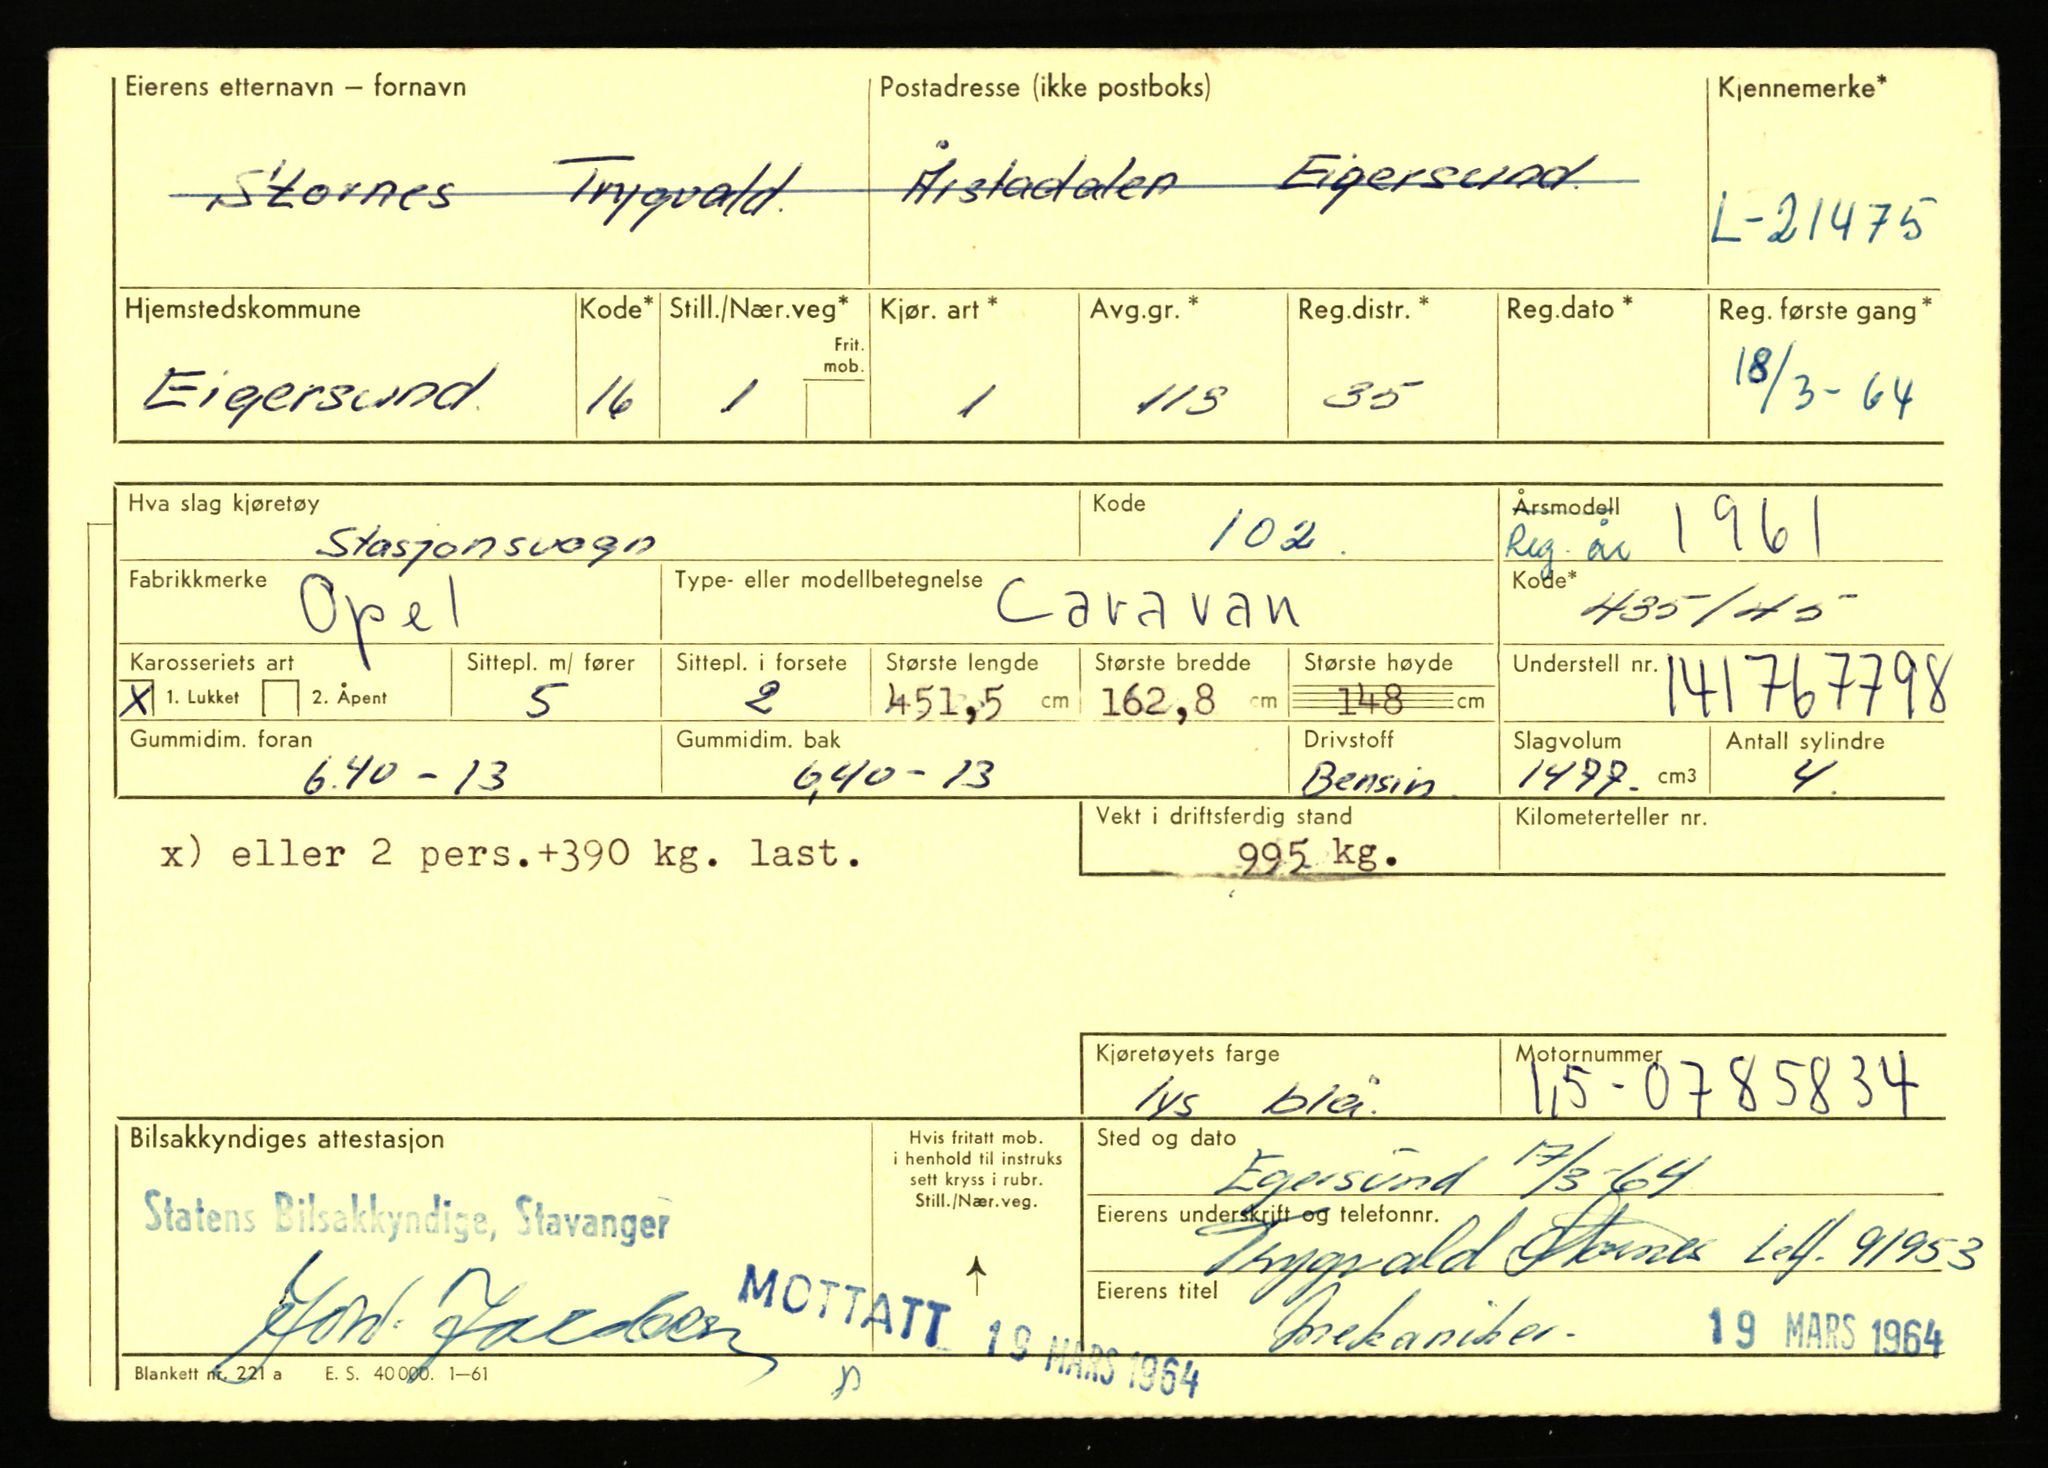 Eierens etternavn – fornavn Postadresse (ikke postboks) Kjennemerke*
Stornes Trygvald. Årstadalen Eigersund.
L-21475
Hjemstedskommune Kode* Still./Nær.veg* Kjør. art * Avg.gr. * Reg.distr. * Reg.dato * Reg. første gang *
Frit. mob.
Eigersund. 16 1 1 113 35 18/3-64
Hva slag kjøretøy Kode Årsmodell
Stasjonsvogn 102. Reg. år 1961
Fabrikkmerke Opel Type- eller modellbetegnelse Caravan Kode* 435/45
Karosseriets art Sittepl. m/ fører Sittepl. i forsete Største lengde Største bredde Største høyde Understell nr. 141767798
X 1. Lukket 2. Åpent 5 2 451,5 cm 162,8 cm 148 cm
Gummidim. foran Gummidim. bak Drivstoff Slagvolum Antall sylindre
6.40 - 13 6,40 - 13 Bensin. 1477. cm3 4.
Vekt i driftsferdig stand Kilometerteller nr.
x) eller 2 pers.+390 kg. last. 995 kg.
Kjøretøyets farge Motornummer
lys blå. 1,5-0785834
Bilsakkyndiges attestasjon Hvis fritatt mob. Sted og dato
i henhold til instruks
sett kryss i rubr.
Still./Nær.veg.
Egersund 17/3-64
Statens Bilsakkyndige, Stavanger
Eierens underskrift og telefonnr.
Trygvald Stornes telf. 91953
Eierens titel
MOTTATT mekaniker. 19 MARS 1964
19 MARS 1964
Blankett nr. 221 a E. S. 40 000. 1–61